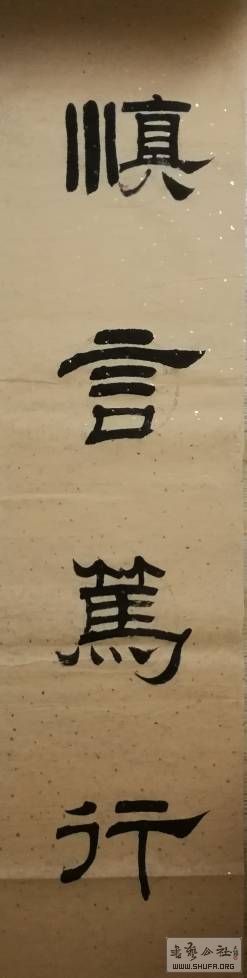 慎言篤行
书艺公社
WWW.SHUFA.ORG